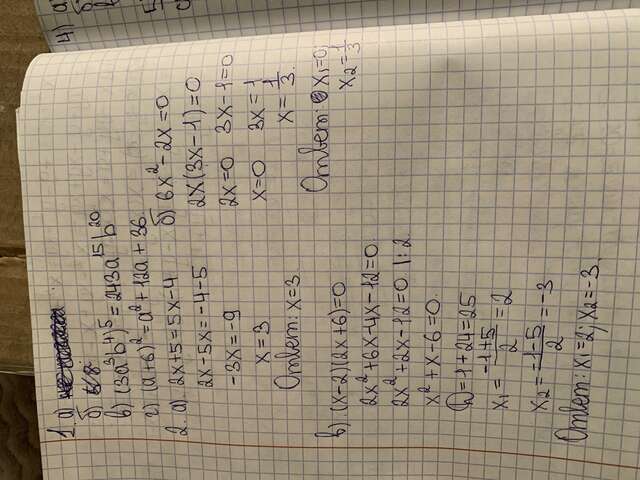 1. а)
б) 5/8
в) (3a³b⁴)⁵ = 243a¹⁵b²⁰
г) (a+6)² = a²+12a+36.
2. а) 2x+5=5x-4
2x-5x=-4-5
-3x=-9
x=3
Ответ: x=3
б) 6x²-2x=0
2x(3x-1)=0
2x=0 3x-1=0
x=0 3x=1
x=1/3.
Ответ: x₁=0;
x₂=1/3
в) (x-2)(2x+6)=0
2x²+6x-4x-12=0.
2x²+2x-12=0 |:2
x²+x-6=0.
D=1+24=25
x₁= -1+5/2 =2
x₂= -1-5/2 =-3
Ответ: x₁=2; x₂=-3.
4) а)
б
в